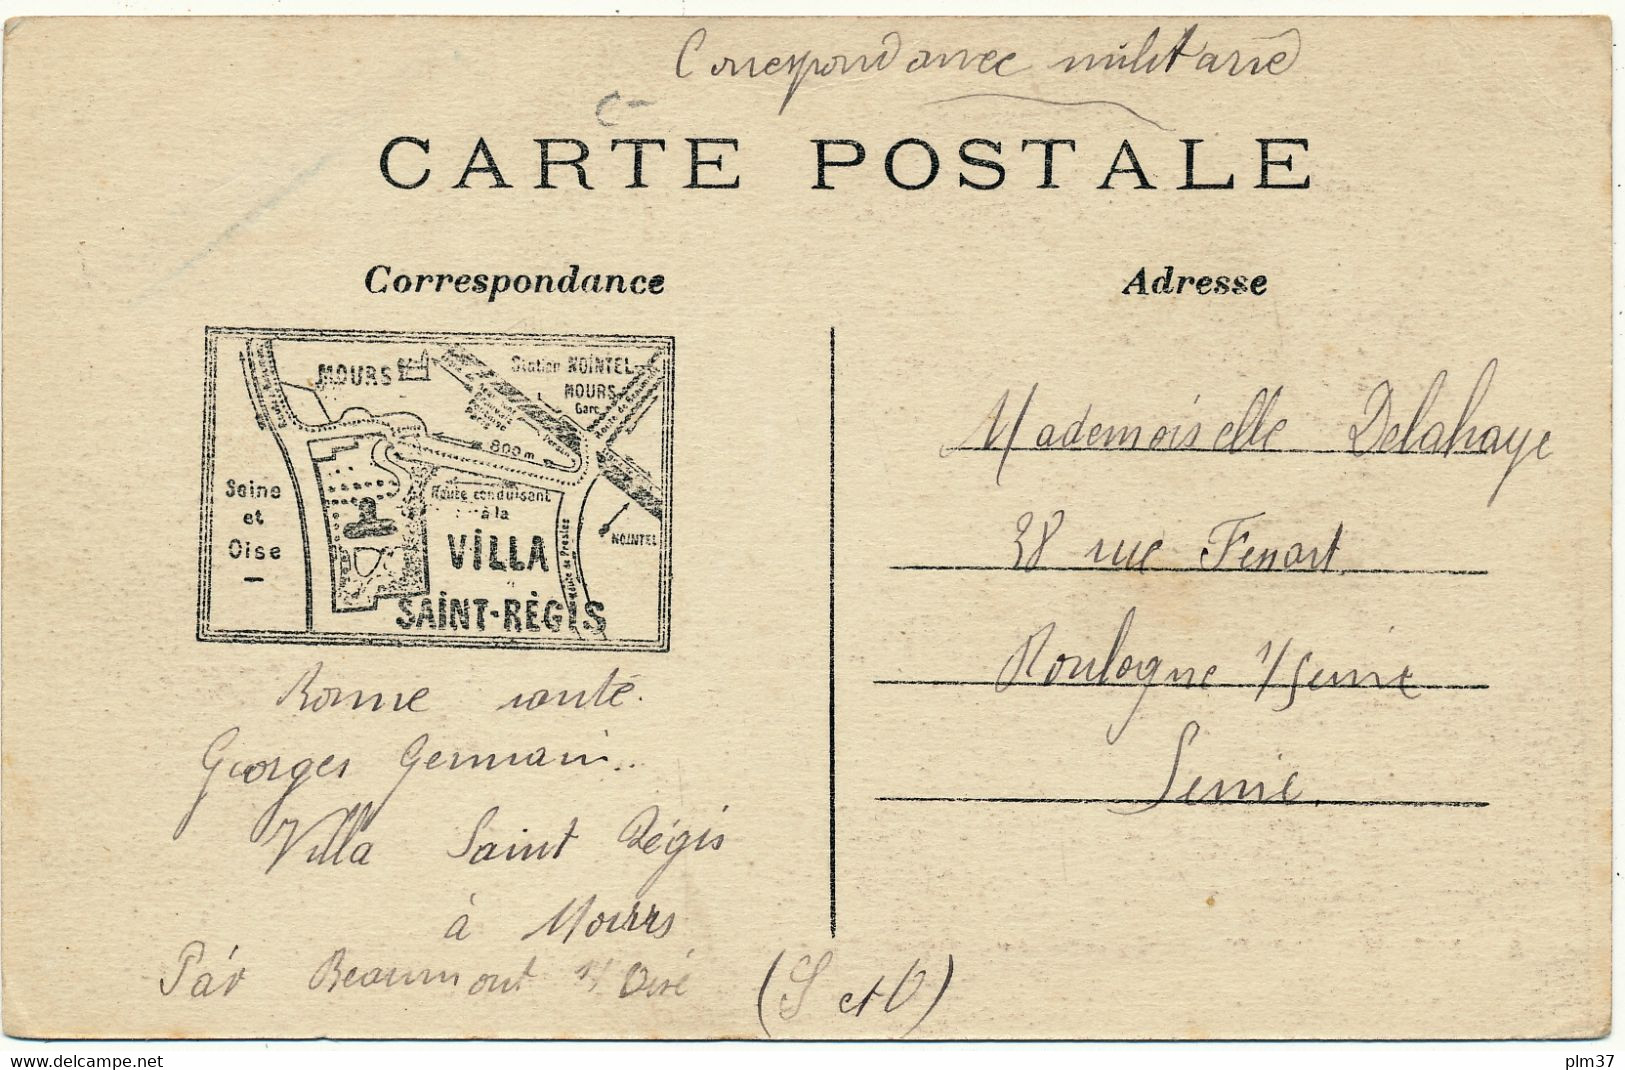 Correspondance militaire
CARTE POSTALE
Correspondance
Adresse
MOURS
Station NOINTEL
MOURS
Gare
800m
Seine
et
Oise
Route conduisant
à la
VILLA
SAINT-RÉGIS
Route de Presles
NOINTEL
Bonne santé.
Georges Germain..
Villa Saint Régis
à Mours
Par Beaumont s/ Oise (S et O)
Mademoiselle Delahaye
38 rue Fenart
Boulogne s/Seine
Seine.
delcampe.net
plm37